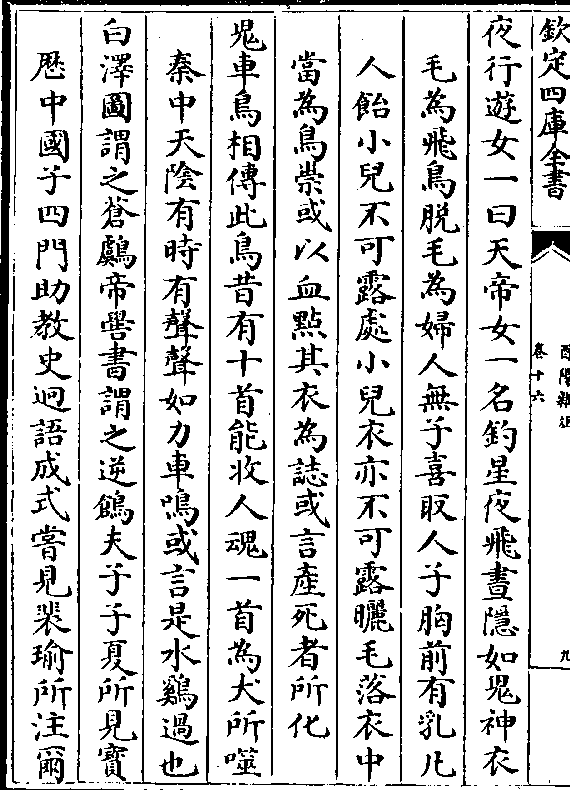 欽定四庫全書
酉陽雜俎
卷十六
九
夜行遊女一曰天帝女一名釣星夜飛晝隱如鬼神衣
毛為飛鳥脱毛為婦人無子喜取人子胸前有乳凡
人飴小兒不可露處小兒衣亦不可露曬毛落衣中
當為鳥祟或以血㸃其衣為誌或言産死者所化
鬼車鳥相傳此鳥昔有十首能收人魂一首為犬所噬
秦中天陰有時有聲聲如力車鳴或言是水鷄過也
白澤圖謂之蒼鸆帝嚳書謂之逆鶬夫子子夏所見寳
厯中國子四門助教史迥語成式嘗見裴瑜所注爾